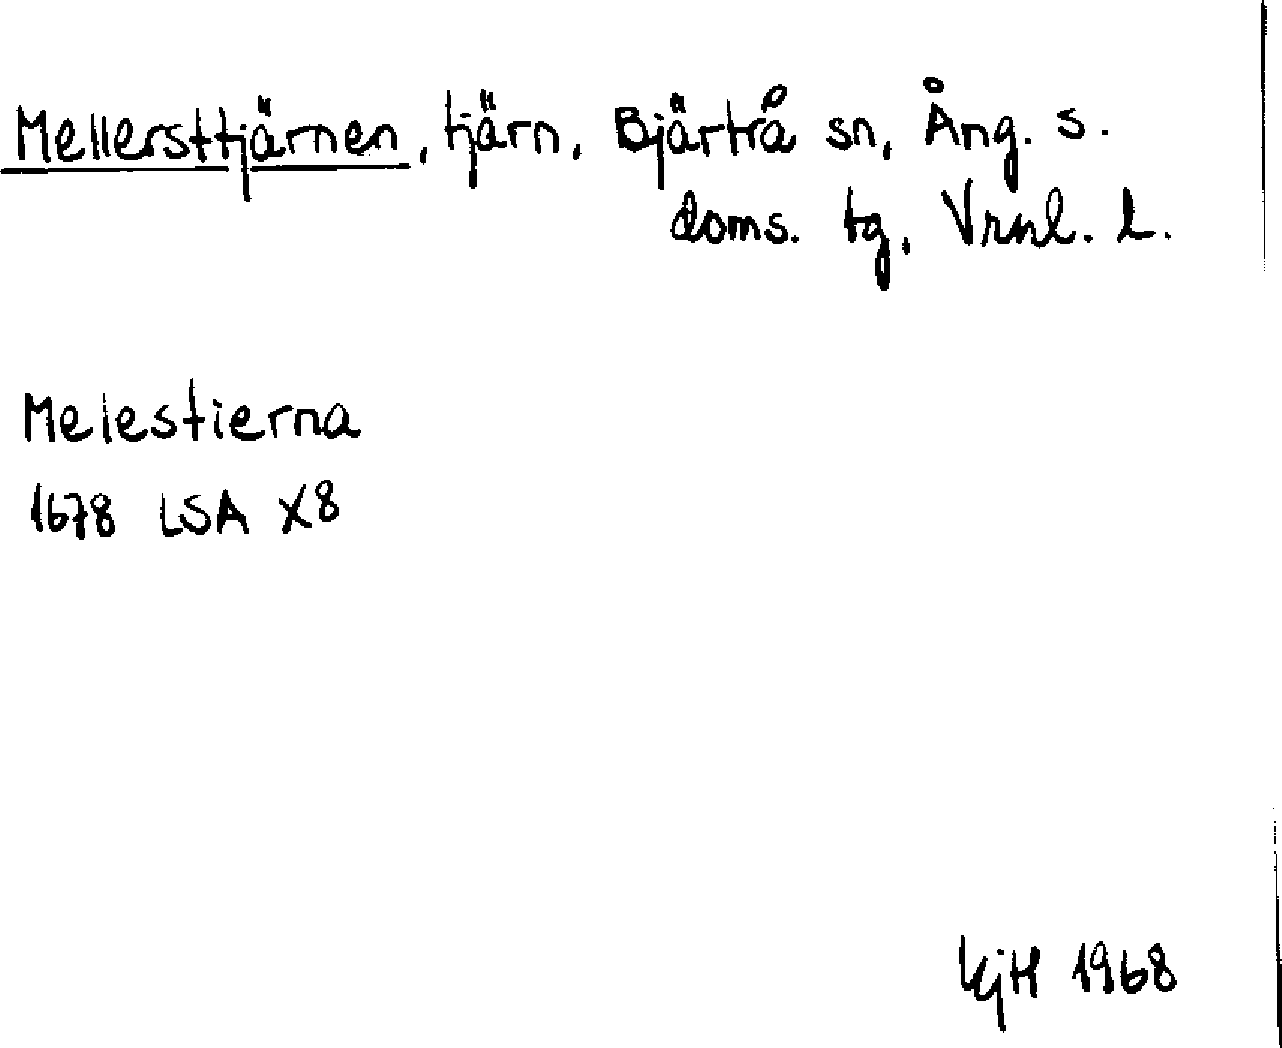 Mellersttjärnen, tjärn, Bjärtrå sn, Ång. s.
doms. tg, Vrnl. l.
Melestierna
1678 LSA X8
KjH 1968